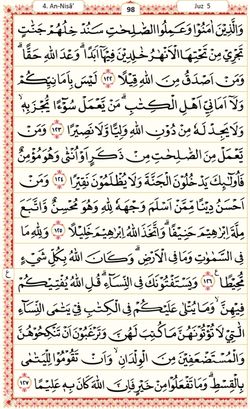 4. An-Nisā' 98 Juz 5
وَالَّذِيْنَ اٰمَنُوْا وَعَمِلُوا الصّٰلِحٰتِ سَنُدْخِلُهُمْ جَنّٰتٍ
تَجْرِيْ مِنْ تَحْتِهَا الْاَنْهٰرُ خٰلِدِيْنَ فِيْهَآ اَبَدًاۗ وَعْدَ اللّٰهِ حَقًّاۗ
وَمَنْ اَصْدَقُ مِنَ اللّٰهِ قِيْلًا ١٢٢ لَيْسَ بِاَمَانِيِّكُمْ
وَلَآ اَمَانِيِّ اَهْلِ الْكِتٰبِۗ مَنْ يَّعْمَلْ سُوْۤءًا يُّجْزَ بِهٖۙ
وَلَا يَجِدْ لَهٗ مِنْ دُوْنِ اللّٰهِ وَلِيًّا وَّلَا نَصِيْرًا ١٢٣ وَمَنْ
يَّعْمَلْ مِنَ الصّٰلِحٰتِ مِنْ ذَكَرٍ اَوْ اُنْثٰى وَهُوَ مُؤْمِنٌ
فَاُولٰۤىِٕكَ يَدْخُلُوْنَ الْجَنَّةَ وَلَا يُظْلَمُوْنَ نَقِيْرًا ١٢٤ وَمَنْ
اَحْسَنُ دِيْنًا مِّمَّنْ اَسْلَمَ وَجْهَهٗ لِلّٰهِ وَهُوَ مُحْسِنٌ وَّاتَّبَعَ
مِلَّةَ اِبْرٰهِيْمَ حَنِيْفًاۗ وَاتَّخَذَ اللّٰهُ اِبْرٰهِيْمَ خَلِيْلًا ١٢٥ وَلِلّٰهِ مَا
فِى السَّمٰوٰتِ وَمَا فِى الْاَرْضِۗ وَكَانَ اللّٰهُ بِكُلِّ شَيْءٍ
مُّحِيْطًا ١٢٦ وَيَسْتَفْتُوْنَكَ فِى النِّسَاۤءِۗ قُلِ اللّٰهُ يُفْتِيْكُمْ
فِيْهِنَّۙ وَمَا يُتْلٰى عَلَيْكُمْ فِى الْكِتٰبِ فِيْ يَتٰمَى النِّسَاۤءِ
الّٰتِيْ لَا تُؤْتُوْنَهُنَّ مَا كُتِبَ لَهُنَّ وَتَرْغَبُوْنَ اَنْ تَنْكِحُوْهُنَّ
وَالْمُسْتَضْعَفِيْنَ مِنَ الْوِلْدَانِۙ وَاَنْ تَقُوْمُوْا لِلْيَتٰمٰى
بِالْقِسْطِۗ وَمَا تَفْعَلُوْا مِنْ خَيْرٍ فَاِنَّ اللّٰهَ كَانَ بِهٖ عَلِيْمًا ١٢٧